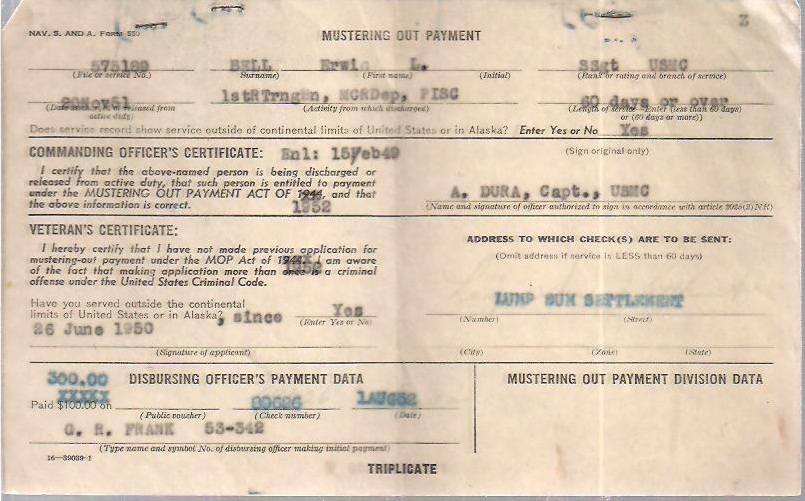 NAV. S. AND A. FORM 550
MUSTERING OUT PAYMENT
3
575189 BELL Erwin L. SSgt USMC
(File or service No.) (Surname) (First name) (Initial) (Rank or rating and branch of service)
20Nov51 1stRTrngBn, MCRDep, PISC 60 days or over
(Date released from active duty) (Activity from which discharged) (Length of service—Enter (less than 60 days) or (60 days or more))
Does service record show service outside of continental limits of United States or in Alaska? Enter Yes or No Yes
COMMANDING OFFICER'S CERTIFICATE: Enl: 15Feb49
(Sign original only)
I certify that the above-named person is being discharged or
released from active duty, that such person is entitled to payment
under the MUSTERING OUT PAYMENT ACT OF 1944, and that
the above information is correct. 1952
A. DURA, Capt., USMC
(Name and signature of officer authorized to sign in accordance with article NR)
VETERAN'S CERTIFICATE:
I hereby certify that I have not made previous application for
mustering-out payment under the MOP Act of 1944. I am aware
1952
of the fact that making application more than once is a criminal
offense under the United States Criminal Code.
ADDRESS TO WHICH CHECK(S) ARE TO BE SENT:
(Omit address if service is LESS than 60 days)
LUMP SUM SETTLEMENT
(Number) (Street)
Have you served outside the continental
limits of United States or in Alaska?, since Yes
26 June 1950 (Enter Yes or No)
(Signature of applicant) (City) (Zone) (State)
300.00 DISBURSING OFFICER'S PAYMENT DATA
XXXXX
Paid $100.00 on 1AUG52
(Public voucher) (Check number) (Date)
G. R. FRANK 53-342
(Type name and symbol No. of disbursing officer making initial payment)
MUSTERING OUT PAYMENT DIVISION DATA
16—39039-1
TRIPLICATE